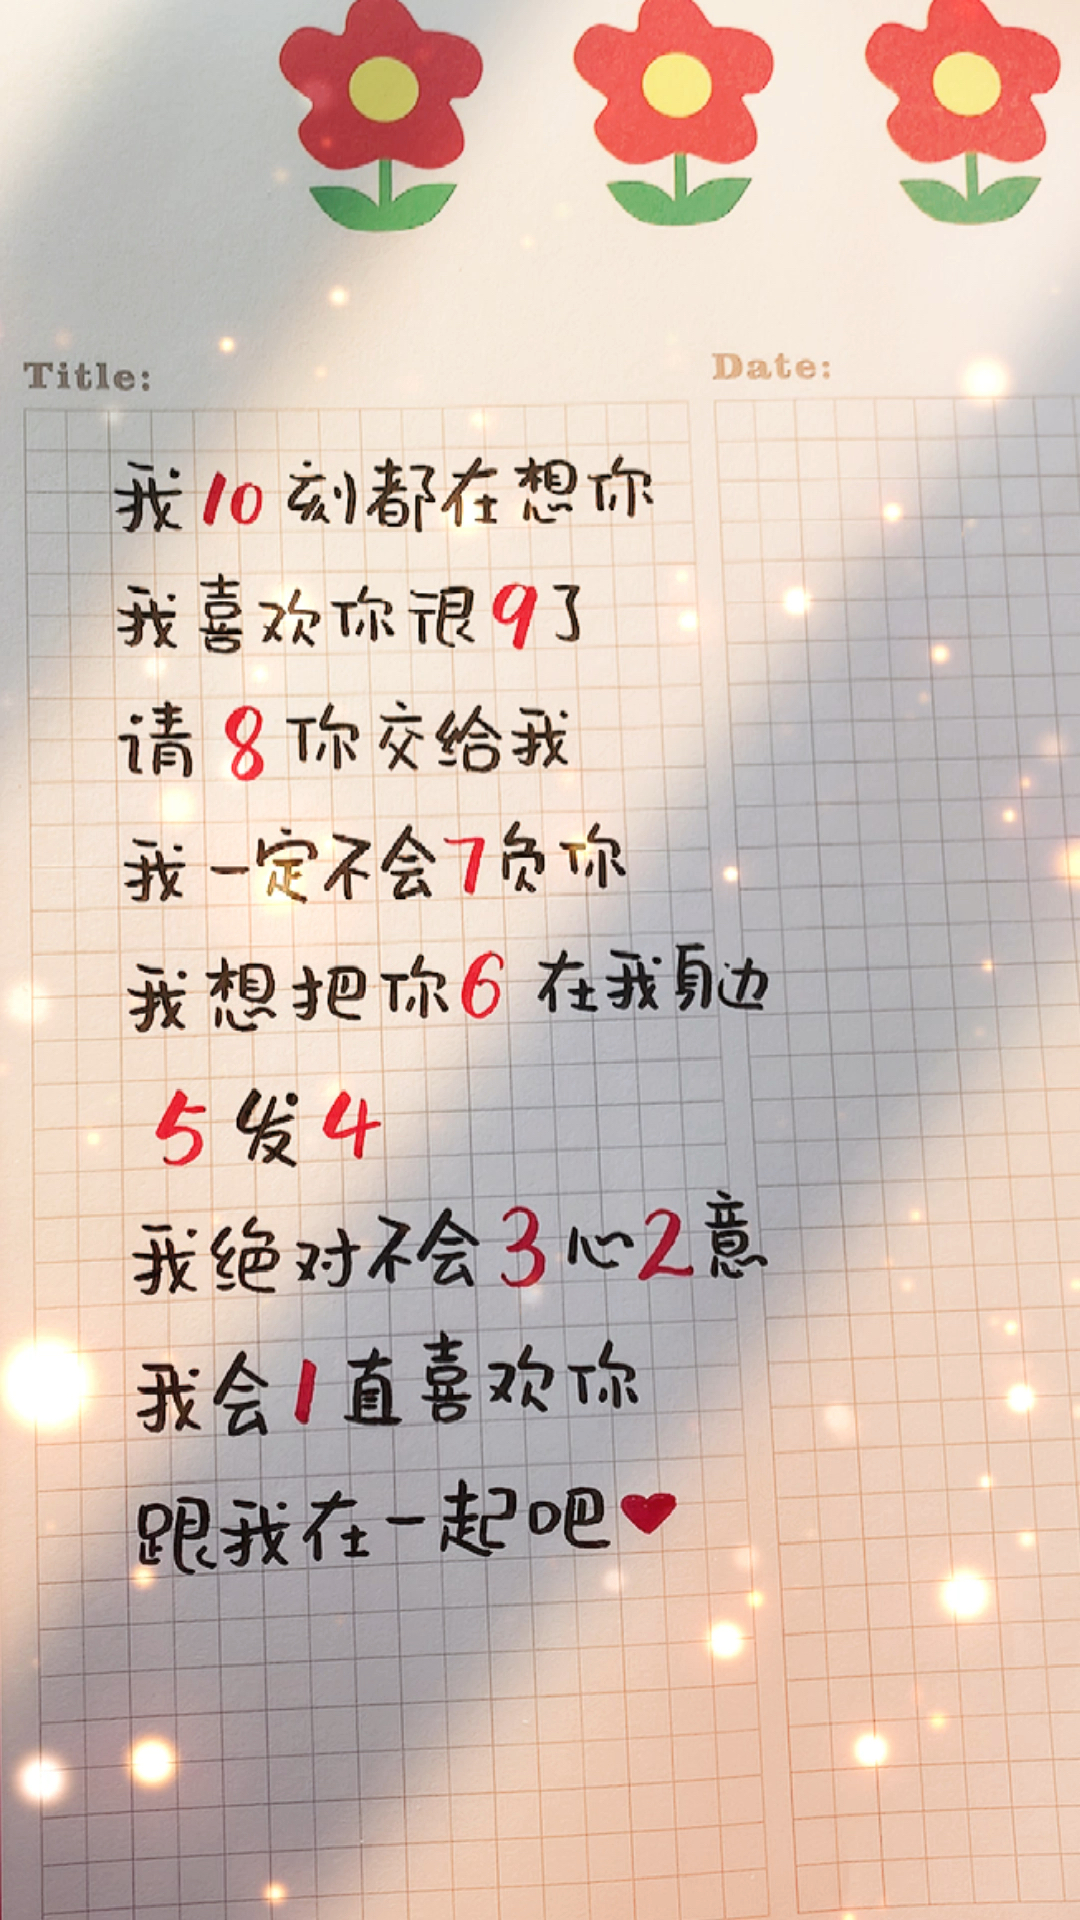 Title:
Date:
我10刻都在想你
我喜欢你很9了
请8你交给我
我一定不会7负你
我想把你6在我身边
5发4
我绝对不会3心2意
我会1直喜欢你
跟我在一起吧❤